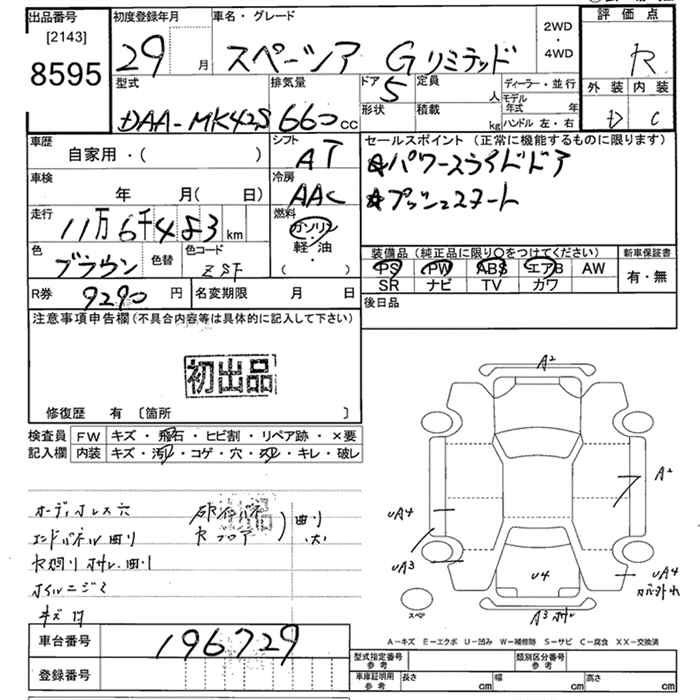 出品番号
[2143]
8595
初度登録年月
29 月
車名・グレード
スペーシア Gリミテッド
2WD
・
4WD
評価点
R
外装 内装
D C
型式
DAA-MK42S
排気量
660 cc
ドア
5
定員
人
形状
積載
kg
ディーラー・並行
モデル年式 年
ハンドル 左・右
車歴
自家用・( )
シフト
AT
車検
年 月( 日)
冷房
AAC
走行
11万6千483 km
燃料
ガソリン
軽・油
( ・ )
色
ブラウン
色替
色コード
ZSF
R券
9290 円
名変期限 月 日
セールスポイント(正常に機能するものに限ります)
★パワースライドドア
★プッシュスタート
装備品(純正品に限り〇をつけてください)
新車保証書
PS PW ABS エアB AW
SR ナビ TV カワ
有・無
後日品
注意事項申告欄(不具合内容等は具体的に記入して下さい)
初出品
修復歴 有 〔箇所 〕
検査員
記入欄
FW キズ・飛石・ヒビ割・リペア跡・×要
内装 キズ・汚れ・コゲ・穴・スレ・キレ・破レ
オーディオレス穴
エンドパネル曲り
Rフロア
曲り
・大
キズ
A2
A2
UA4
UA3
U4
UA4
カバー外れ
スペア
A3
A-キズ E-エクボ U-凹み W-補修跡 S-サビ C-腐食 XX-交換済
車台番号
196729
登録番号
型式指定番号
参考
類別区分番号
参考
車庫証明用
参考
長さ cm
幅 cm
高さ cm